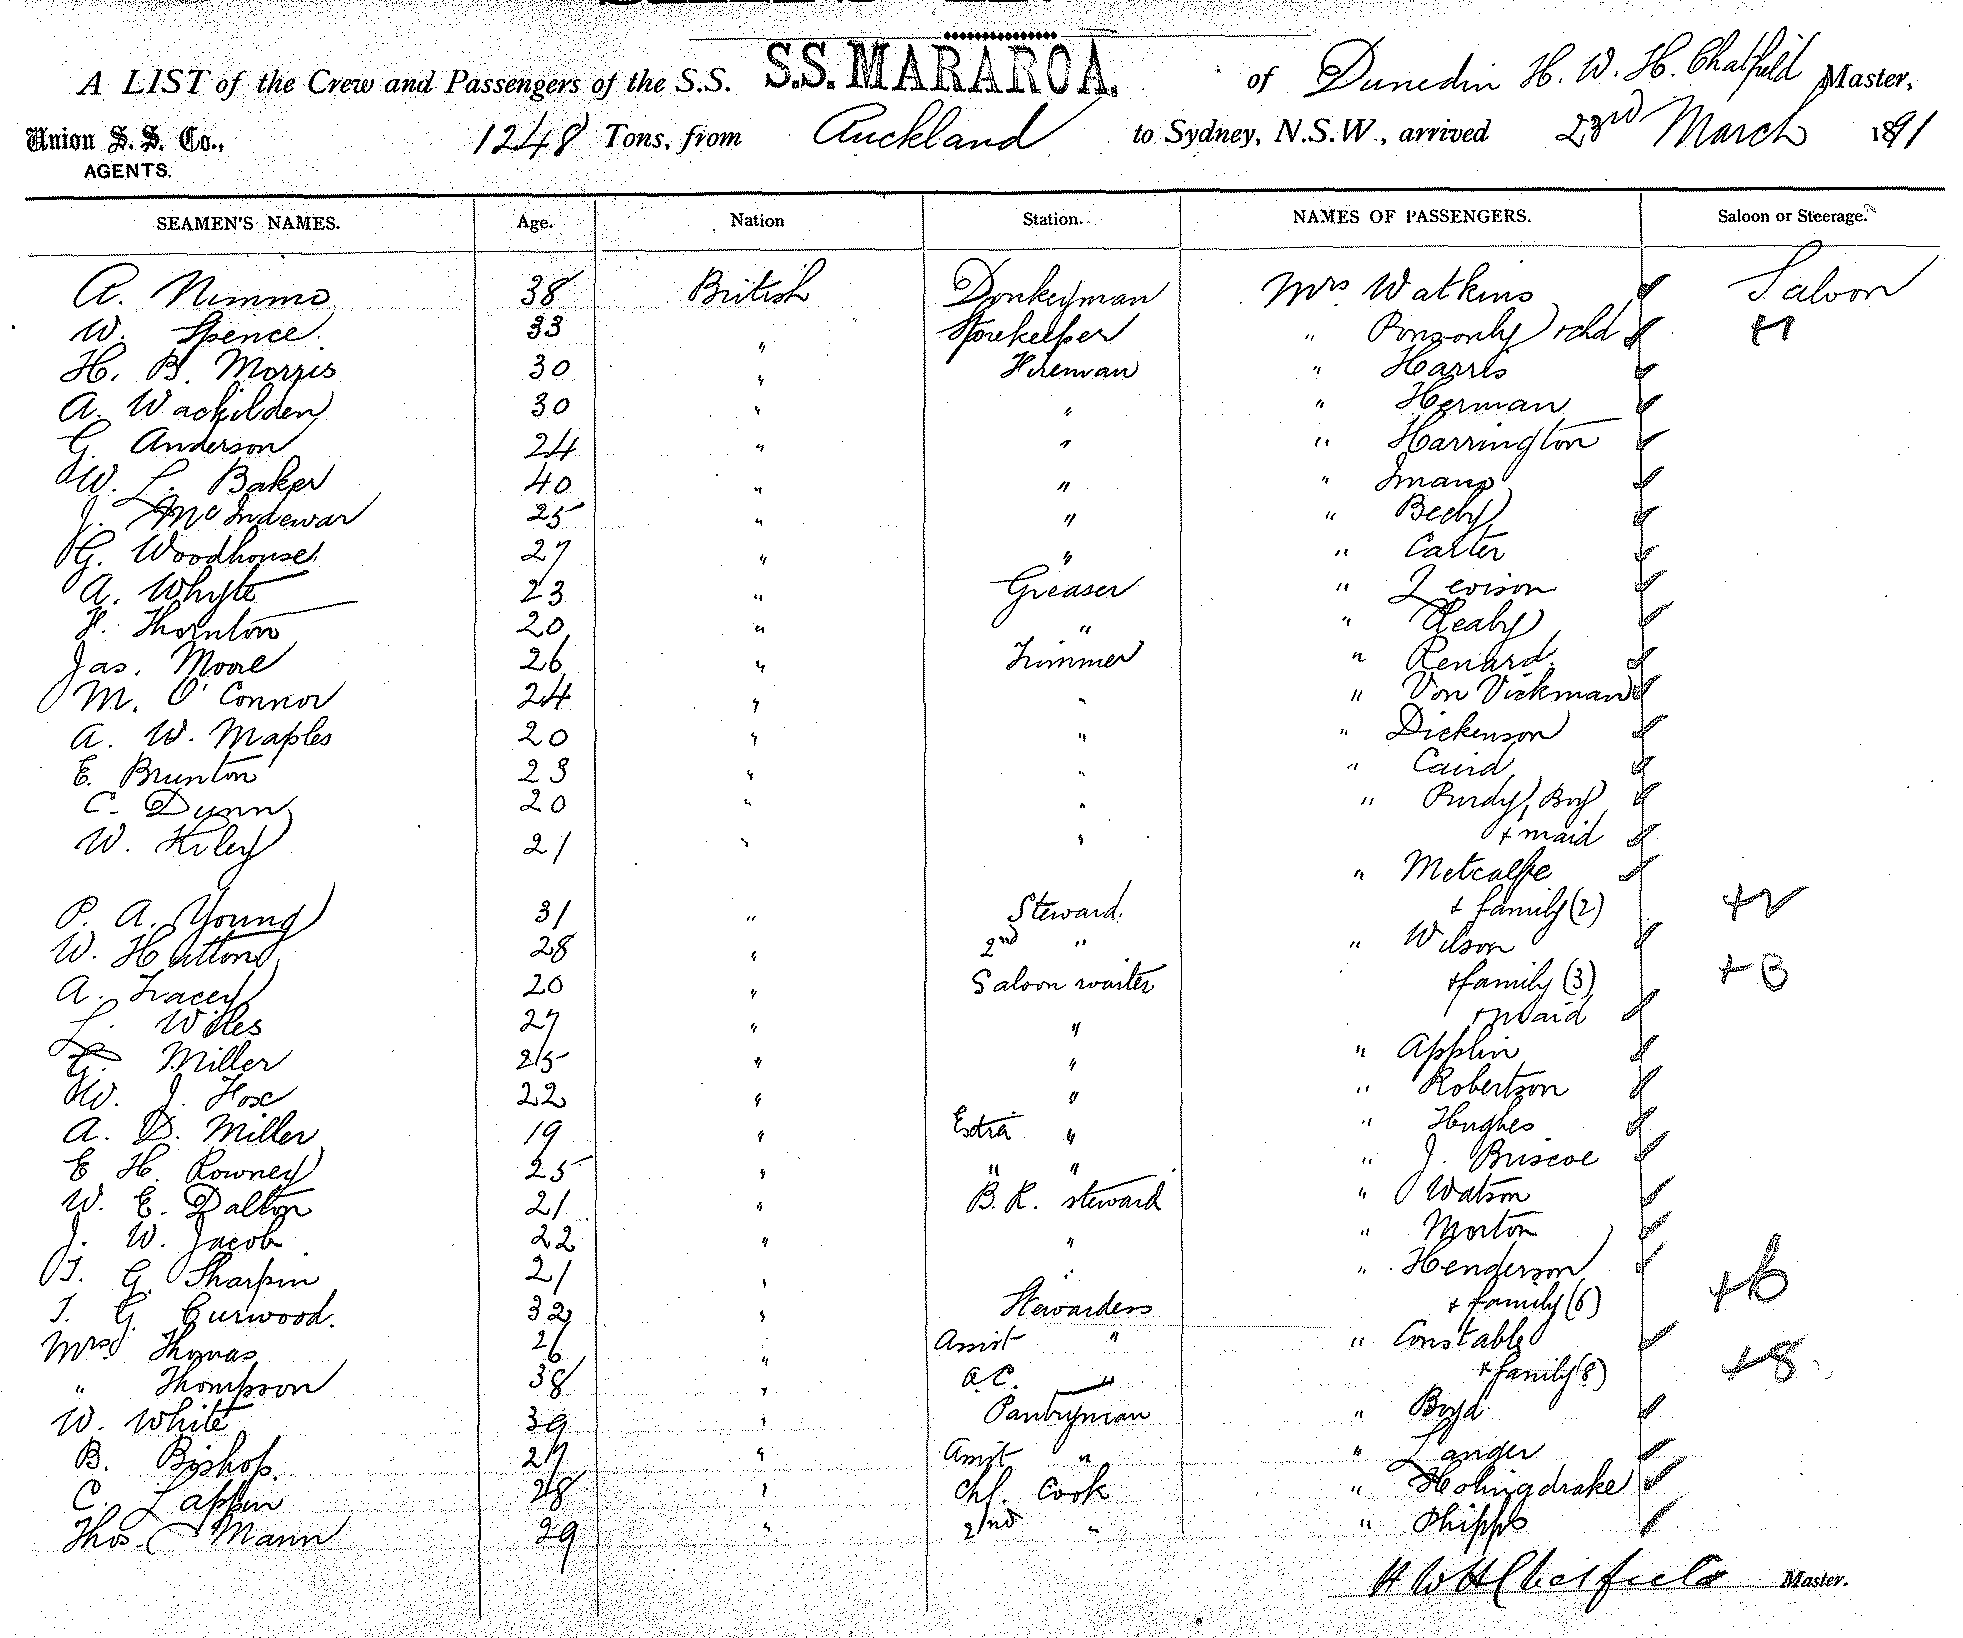 A LIST of the Crew and Passengers of the S.S. S.S. MARAROA. of Dunedin H. W. H. Chatfield Master,
Union S. S. Co., 1248 Tons, from Auckland to Sydney, N.S.W., arrived 23rd March 1891
AGENTS.
SEAMEN'S NAMES. Age. Nation Station. NAMES OF PASSENGERS. Saloon or Steerage.
A. Nimmo 38 British Donkeyman Mrs Watkins Saloon
W. Spence 33 " Storekeeper " Ponsonby + chd +1
H. B. Morris 30 " Fireman " Harris
A. Wackilden 30 " " " Herman
G. Anderson 24 " " " Harrington
W. L. Baker 40 " " "
J. McIndewar 25 " " " Beeby
G. Woodhouse 27 " " " Carter
A. Whyte 23 " Greaser " Levison
F. Thornton 20 " " " Heaby
Jas. Moore 26 " Trimmer " Renard
M. O'Connor 24 " " " Von Vickman
A. W. Maples 20 " " " Dickenson
E. Brunton 23 " " " Caird
C. Dunn 20 " " " Purdy, Boy
W. Kiley 21 " " + maid
" Metcalfe
P. A. Young 31 " Steward. + family (2) +2
W. Hutton 28 " 2nd " " Wilson
A. Tracey 20 " Saloon waiter + family (3) +3
L. Wiles 27 " " + maid
G. Miller 25 " " " Applin
W. J. Fox 22 " " " Robertson
A. D. Miller 19 " Extra " " Hughes
E. H. Rowney 25 " " " " J. Briscoe
W. E. Dalton 21 " B. R. steward " Watson
J. W. Jacob 22 " " " Morton
T. G. Sharpin 21 " " " Henderson
T. G. Curwood. 32 " Stewardess + family (6) +6
Mrs Thomas 26 " Assist " " Constable
" Thompson 38 " A.C. " + family (8) +8
W. White 39 " Pantryman " Boyd
B. Bishop. 27 " Assist " " Lander
C. Lappin 28 " Chf. Cook " Holingdrake
Thos. Mann 29 " 2nd " " Phipps
H W H Chatfield Master.